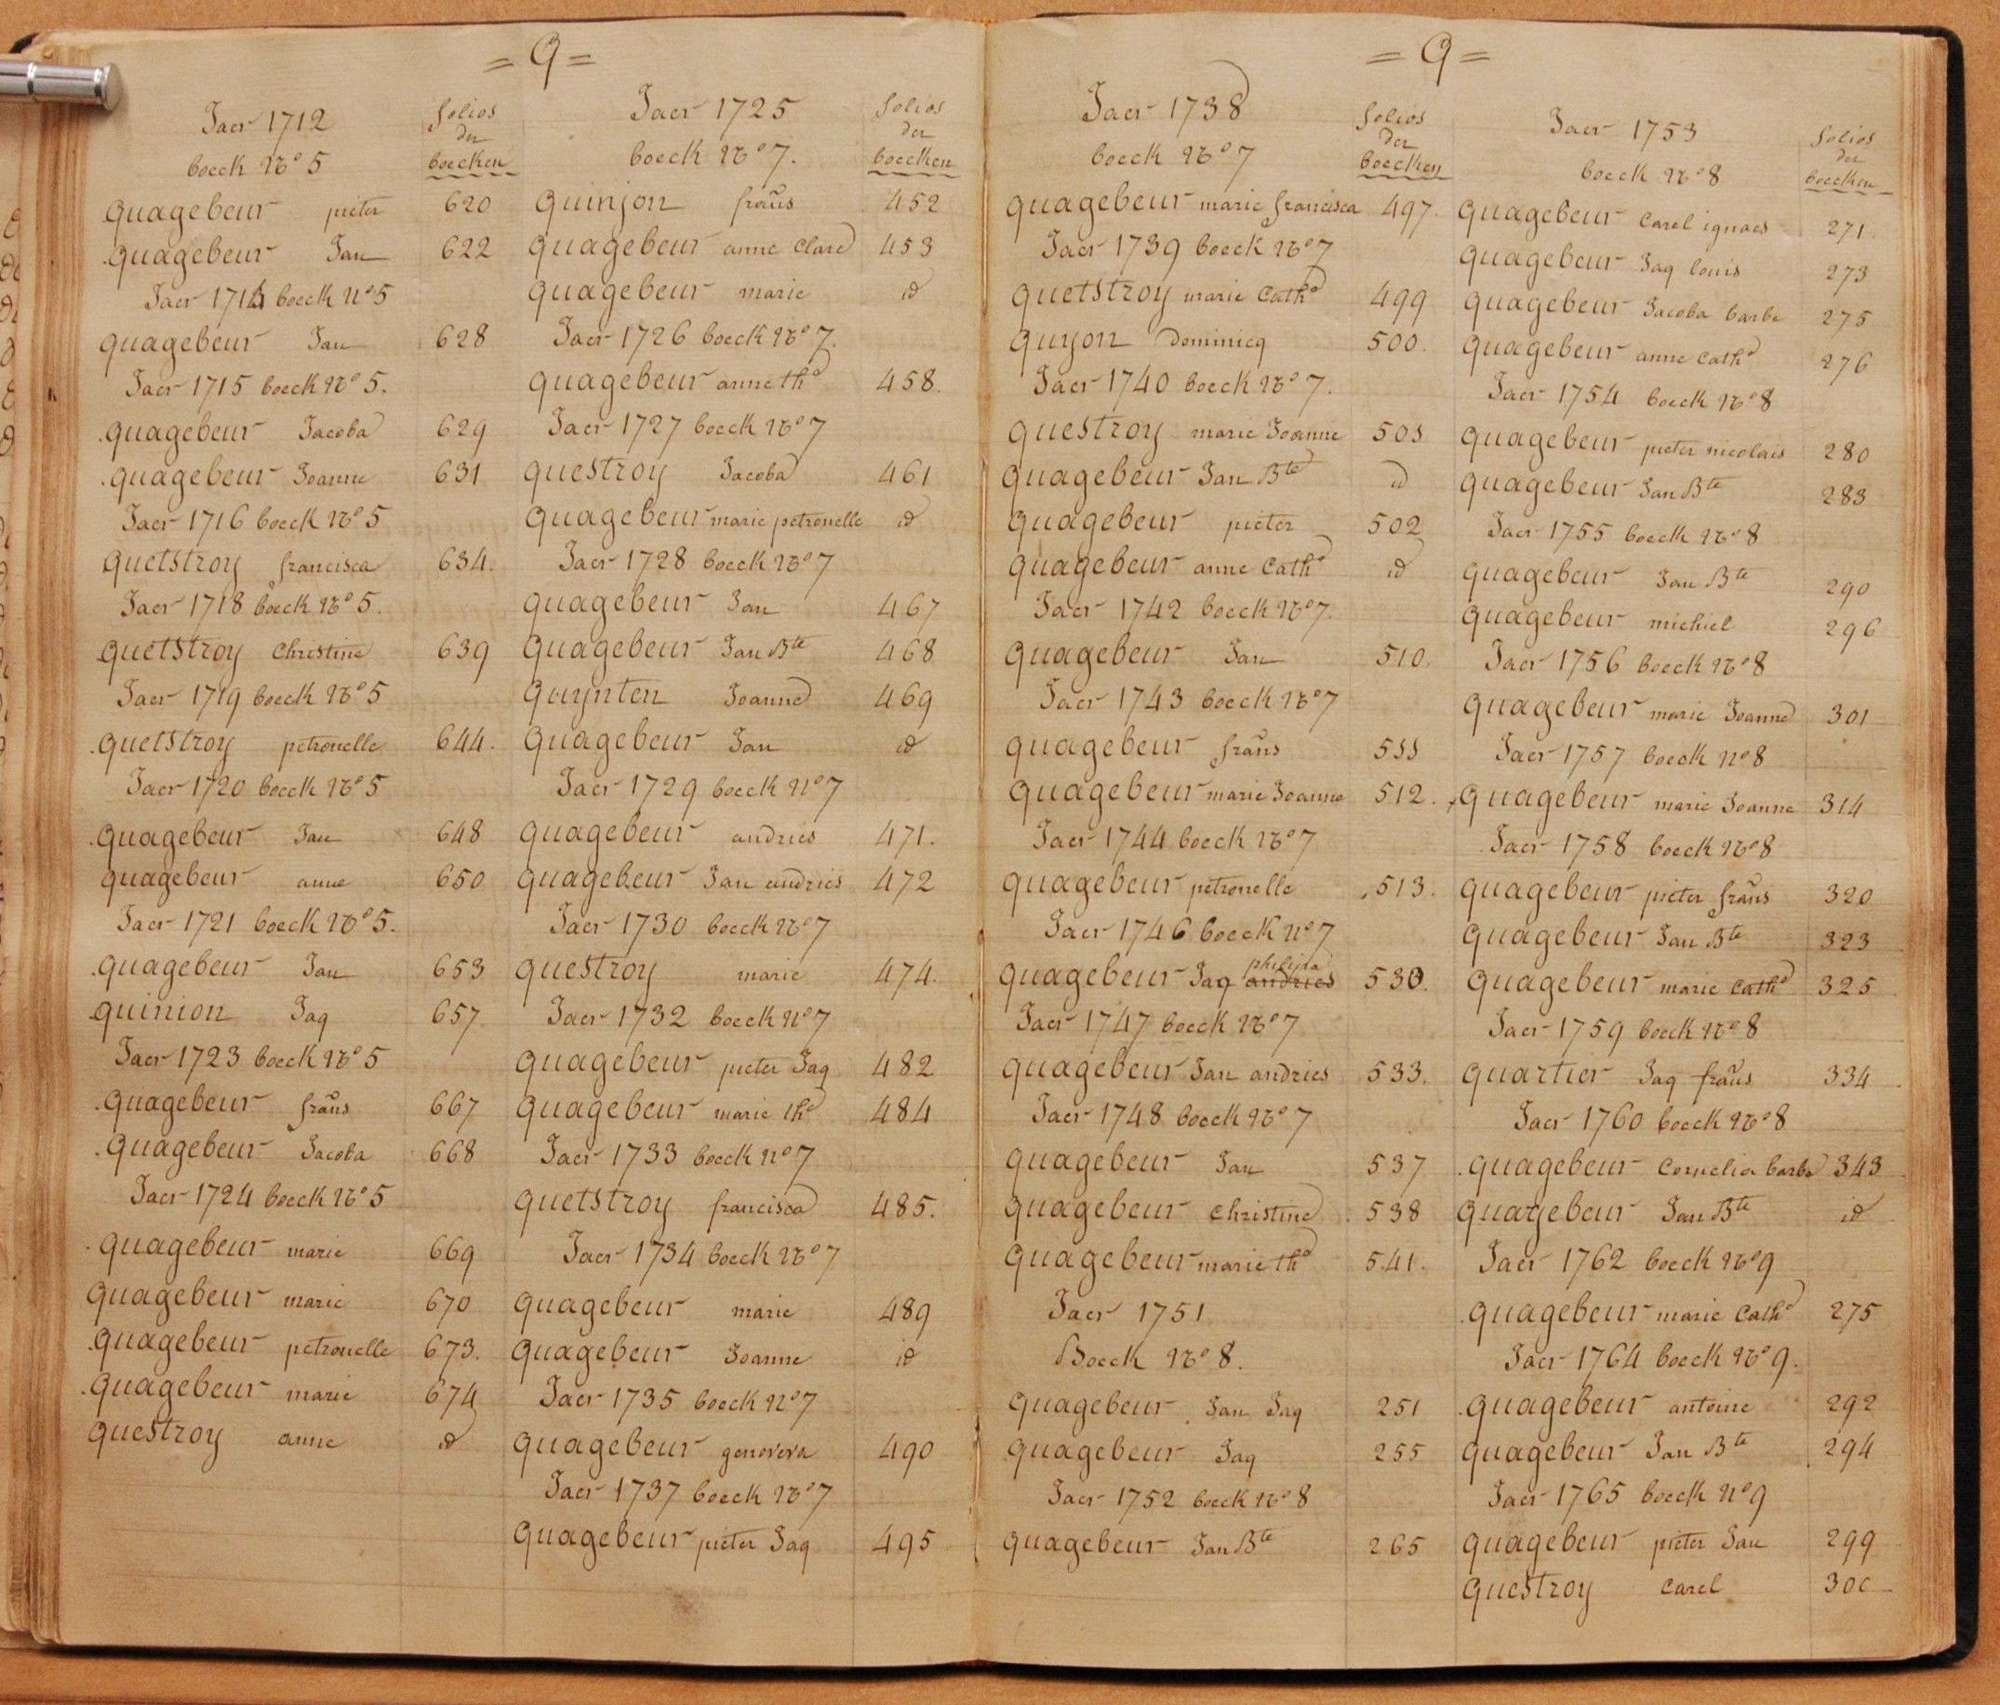 = Q =
Jaer 1712
boeck No 5
folios
der
boecken
quagebeur pieter 620
quagebeur Jan 622
Jaer 1714 boeck No 5
quagebeur Jan 628
Jaer 1715 boeck No 5.
quagebeur Jacoba 629
quagebeur Joanne 631
Jaer 1716 boeck No 5
quetstroy francisca 634.
Jaer 1718 boeck No 5.
quetstroy Christine 639
Jaer 1719 boeck No 5
quetstroy petronelle 644.
Jaer 1720 boeck No 5
quagebeur Jan 648
quagebeur anne 650
Jaer 1721 boeck No 5.
quagebeur Jan 653
quinion Jaq 657
Jaer 1723 boeck No 5
quagebeur frans 667
quagebeur Jacoba 668
Jaer 1724 boeck No 5
quagebeur marie 669
quagebeur marie 670
quagebeur petronelle 673.
quagebeur marie 674
questroy anne id
Jaer 1725
boeck No 7.
folios
der
boecken
quinjon frans 452
quagebeur anne Clare 453
quagebeur marie id
Jaer 1726 boeck No 7.
quagebeur anne the 458.
Jaer 1727 boeck No 7
questroy Jacoba 461
quagebeur marie petronelle id
Jaer 1728 boeck No 7
quagebeur Jan 467
quagebeur Jan Bte 468
quynten Joanne 469
quagebeur Jan id
Jaer 1729 boeck No 7
quagebeur andries 471.
quagebeur Jan andries 472
Jaer 1730 boeck No 7
questroy marie 474.
Jaer 1732 boeck No 7
quagebeur pieter Jaq 482
quagebeur marie the 484
Jaer 1733 boeck No 7
quetstroy francisca 485.
Jaer 1734 boeck No 7
quagebeur marie 489
quagebeur Joanne id
Jaer 1735 boeck No 7
quagebeur genoveva 490
Jaer 1737 boeck No 7
quagebeur pieter Jaq 495
= Q =
Jaer 1738
boeck No 7
folios
der
boecken
quagebeur marie francisca 497.
Jaer 1739 boeck No 7
quetstroy marie Cathe 499
quyon Dominicq 500.
Jaer 1740 boeck No 7.
questroy marie Joanne 501
quagebeur Jan Bte id
quagebeur pieter 502
quagebeur anne Cathe id
Jaer 1742 boeck No 7.
quagebeur Jan 510.
Jaer 1743 boeck No 7
quagebeur frans 511
quagebeur marie Joanne 512.
Jaer 1744 boeck No 7
quagebeur petronelle 513.
Jaer 1746 boeck No 7
philippa
quagebeur Jaq andries 530.
Jaer 1747 boeck No 7
quagebeur Jan andries 533.
Jaer 1748 boeck No 7
quagebeur Jan 537
quagebeur Christine 538
quagebeur marie the 541.
Jaer 1751
Boeck No 8.
quagebeur Jan Jaq 251
quagebeur Jaq 255
Jaer 1752 boeck No 8
quagebeur Jan Bte 265
Jaer 1753
boeck No 8
folios
der
boecken
quagebeur Carel ignaes 271.
quagebeur Jaq louis 273
quagebeur Jacoba barbe 275
quagebeur anne Cathe 276
Jaer 1754 boeck No 8
quagebeur pieter nicolais 280
quagebeur Jan Bte 283
Jaer 1755 boeck No 8
quagebeur Jan Bte 290
quagebeur michiel 296
Jaer 1756 boeck No 8
quagebeur marie Joanne 301
Jaer 1757 boeck No 8
quagebeur marie Joanne 314
Jaer 1758 boeck No 8
quagebeur pieter frans 320
quagebeur Jan Bte 323
quagebeur marie Cathe 325
Jaer 1759 boeck No 8
quartier Jaq frans 334
Jaer 1760 boeck No 8
quagebeur Cornelia barbe 343
quagebeur Jan Bte id
Jaer 1762 boeck No 9
quagebeur marie Cathe 275
Jaer 1764 boeck No 9.
quagebeur antoine 292
quagebeur Jan Bte 294
Jaer 1765 boeck No 9
quagebeur pieter Jan 299
questroy Carel 300